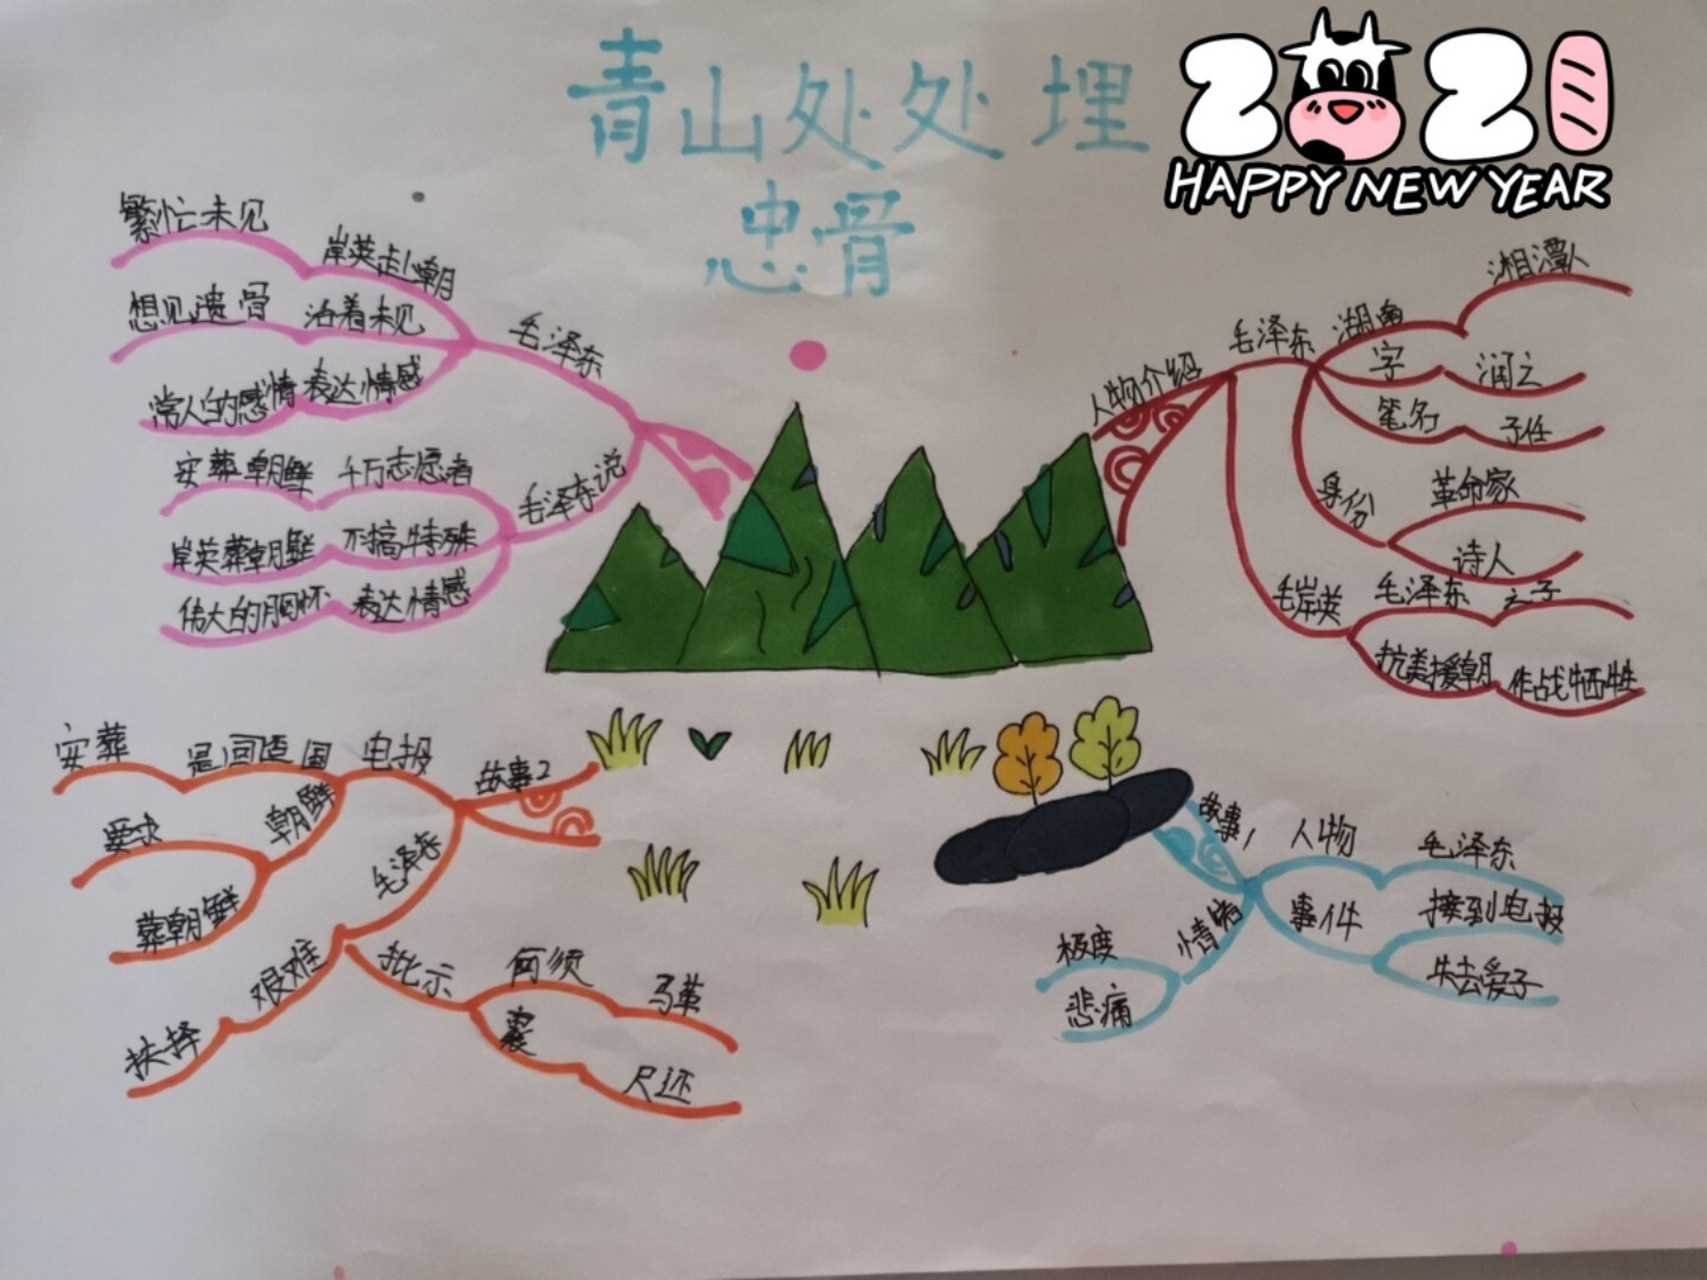 青山处处埋
忠骨
2021
HAPPY NEW YEAR
人物介绍
毛泽东
湖南
湘潭人
字
润之
笔名
子任
身份
革命家
诗人
毛岸英
毛泽东
之子
抗美援朝
作战牺牲
故事1
人物
毛泽东
事件
接到电报
失去爱子
情绪
极度
悲痛
故事2
电报
是回
国
安葬
朝鲜
要求
葬朝鲜
毛泽东
艰难
批示
何须
马革
裹
尸还
毛泽东
岸英赴朝
繁忙未见
活着未见
想见遗骨
表达情感
常人的感情
毛泽东说
千万志愿者
安葬朝鲜
不搞特殊
岸英葬朝鲜
表达情感
伟大的胸怀